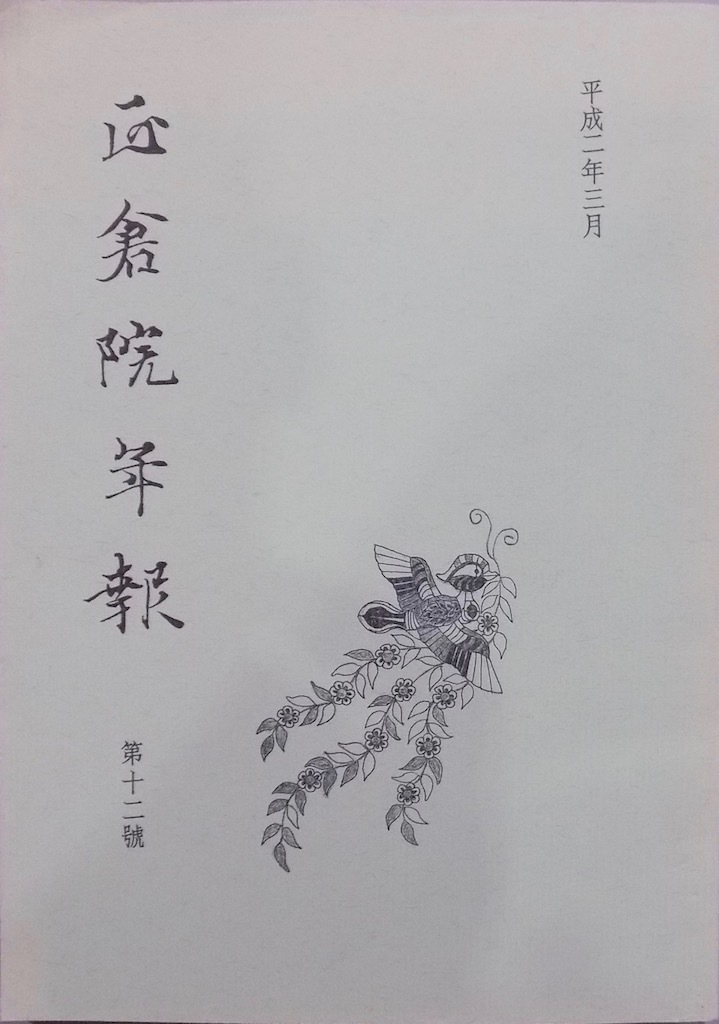 平成二年三月
正倉院年報
第十二號